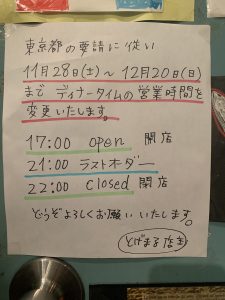 東京都の要請に従い
11月28日(土)〜12月20日(日)
まで ディナータイムの営業時間を
変更いたします。
17:00 open 開店
21:00 ラストオーダー
22:00 closed 閉店
どうぞよろしくお願いいたします。
とげまる店主